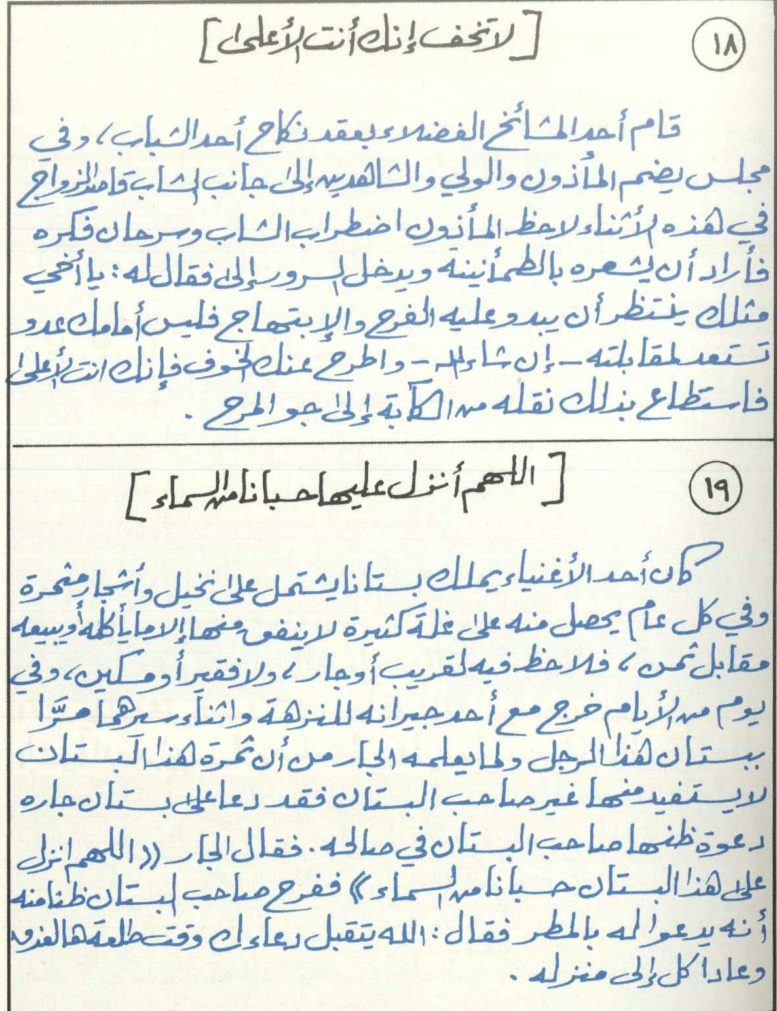 ١٨
[ لا تخف إنك أنت الأعلى ]
قام أحد المشائخ الفضلاء بعقد نكاح أحد الشباب، وفي
مجلس يضم المأذون والولي والشاهدين إلى جانب الشاب قاصد الزواج
في هذه الأثناء لاحظ المأذون اضطراب الشاب وسرحان فكره
فأراد أن يشعره بالطمأنينه ويدخل السرور إلى فقال له: يا أخي
مثلك ينتظر أن يبدو عليه الفرح والإبتهاج فليس أمامك عدو
تستعد لمقابلته - إن شاء الله - واطرح عنك الخوف فإنك انت الأعلى
فاستطاع بذلك نقله من الكآبة إلى جو المرح .
١٩
[ اللهم أنزل عليها حسبانا من السماء ]
كان أحد الأغنياء يملك بستانا يشتمل على نخيل وأشجار مثمرة
وفي كل عام يحصل منه على غلة كثيرة لا ينفق منها إلا ما يأكله أو يبيعه
مقابل ثمن، فلا حظ فيه لقريب أو جار، ولا فقير أو مسكين، وفي
يوم من الأيام خرج مع أحد جيرانه للنزهة واثناء سيرهما مرَّا
ببستان هذا الرجل ولما يعلمه الجار من أن ثمرة هذا البستان
لا يستفيد منها غير صاحب البستان فقد دعا على بستان جاره
دعوة ظنها صاحب البستان في صالحه. فقال الجار ((اللهم انزل
على هذا البستان حسبانا من السماء)) ففرح صاحب البستان ظنا منه
أنه يدعو له بالمطر فقال: الله يتقبل دعاءك وقت طلعة هالغدق
وعادا كل إلى منزله .